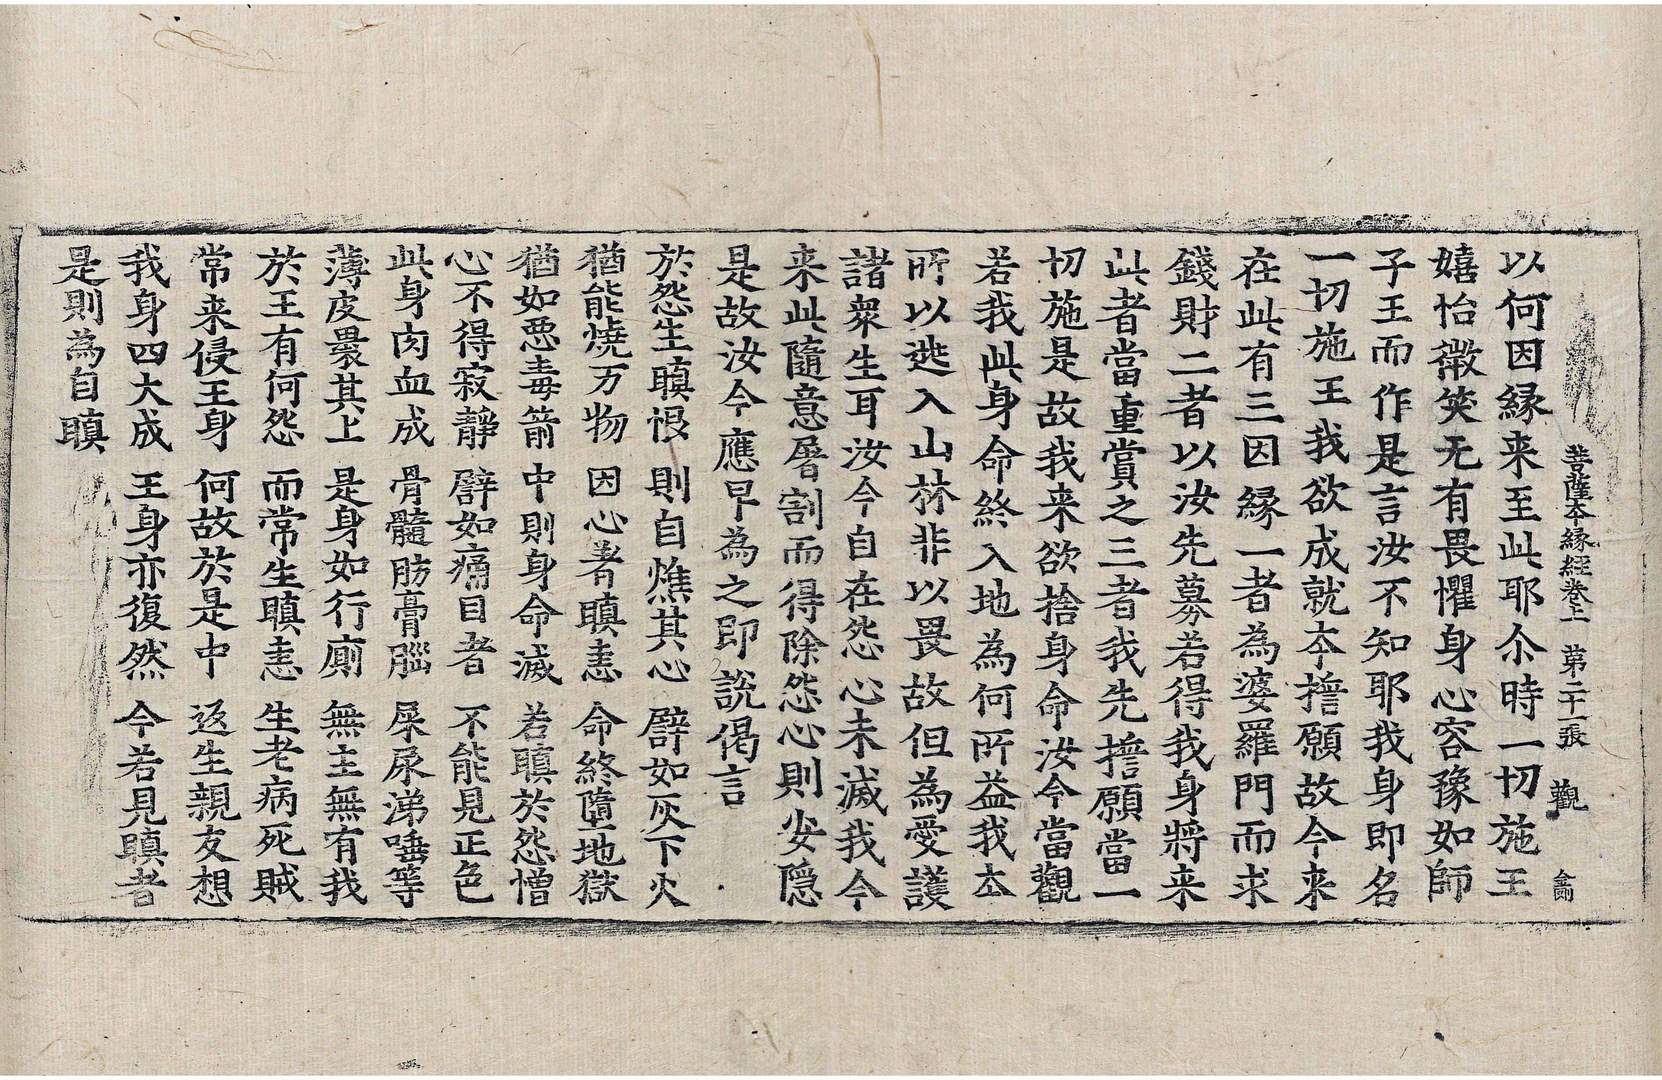 菩薩本縁經卷上　第二十一張　觀
以何因縁来至此耶尒時一切施王
嬉怡微笑无有畏懼身心容豫如師
子王而作是言汝不知耶我身即名
一切施王我欲成就夲擔願故今来
在此有三因縁一者為婆羅門而求
錢財二者以汝先募若得我身將来
此者當重賞之三者我先擔願當一
切施是故我来欲捨身命汝今當觀
若我此身命終入地為何所益我夲
所以迯入山林非以畏故但為愛護
諸衆生耳汝今自在怨心未滅我今
来此隨意屠割而得除怨心則安隱
是故汝今應早為之即說偈言
於怨生瞋恨　則自燋其心　譬如灰下火
猶能燒万物　因心著瞋恚　命終墮地獄
猶如惡毒箭　中則身命滅　若瞋於怨憎
心不得寂靜　譬如痛目者　不能見正色
此身肉血成　骨髓肪膏腦　屎尿涕唾等
薄皮褁其上　是身如行廁　無主無有我
於王有何怨　而常生瞋恚　生老病死賊
常来侵王身　何故於是中　返生親友想
我身四大成　王身亦復然　今若見瞋者
是則為自瞋